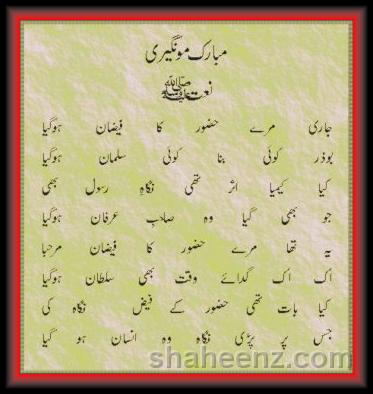 مبارک مونگیری
نعت ﷺ
جاری مرے حضور کا فیضان ہوگیا
بوذر کوئی بنا کوئی سلمان ہوگیا
کیا کیمیا اثر تھی نگاہِ رسول بھی
جو بھی گیا وہ صاحبِ عرفان ہوگیا
یہ تھا مرے حضور کا فیضان مرحبا
اک اک گدائے وقت بھی سلطان ہوگیا
کیا بات تھی حضور کے فیض نگاہ کی
جس پر پڑی نگاہ وہ انسان ہو گیا
shaheenz.com